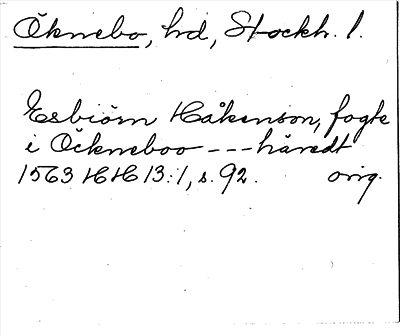 Öknebo, hd, Stockh. l.
Esbiörn Håkenson, fogte
i Öckneboo --- häredt
1563 HH 13:1, s. 92. orig.